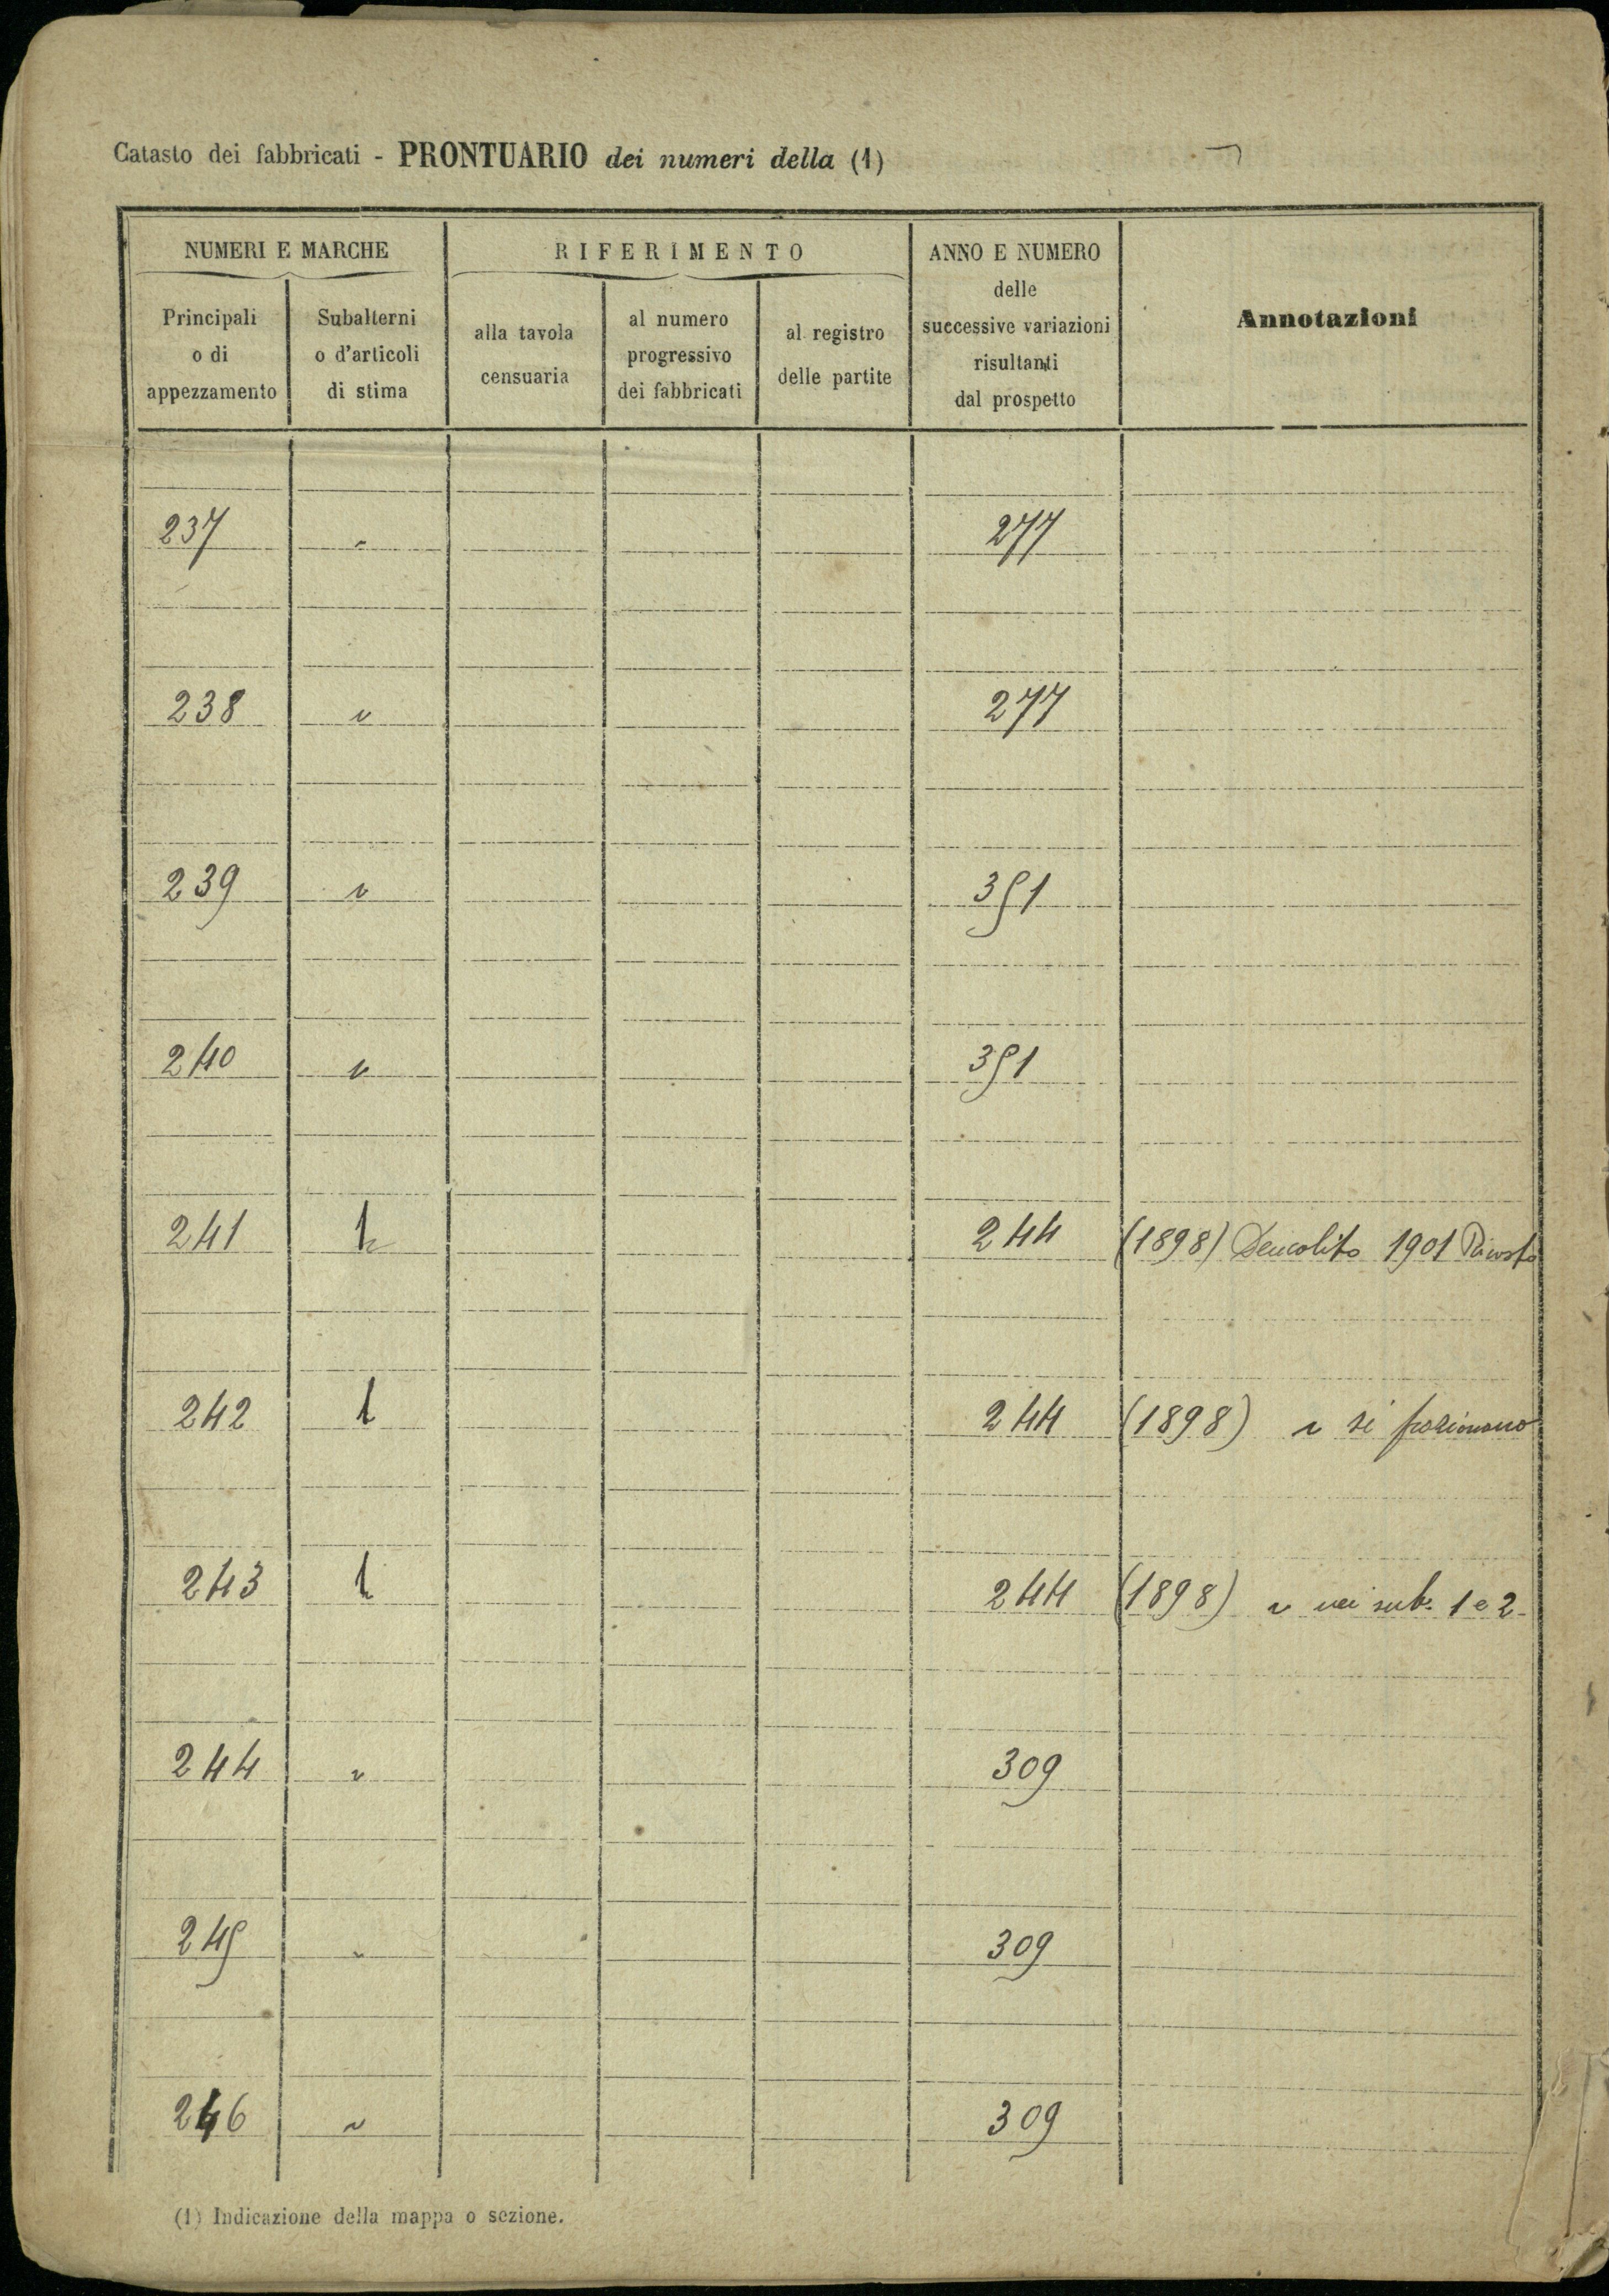 Catasto dei fabbricati - PRONTUARIO dei numeri della (1)
NUMERI E MARCHE
RIFERIMENTO
ANNO E NUMERO
delle
successive variazioni
risultanti
dal prospetto
Annotazioni
Principali
o di
appezzamento
Subalterni
o d'articoli
di stima
alla tavola
censuaria
al numero
progressivo
dei fabbricati
al registro
delle partite
237 " 277
238 " 277
239 " 351
240 " 351
241 1 244 (1898) Demolito 1901
242 1 244 (1898) " si
243 1 244 (1898) " nei sub. 1 e 2
244 " 309
245 " 309
246 " 309
(1) Indicazione della mappa o sezione.